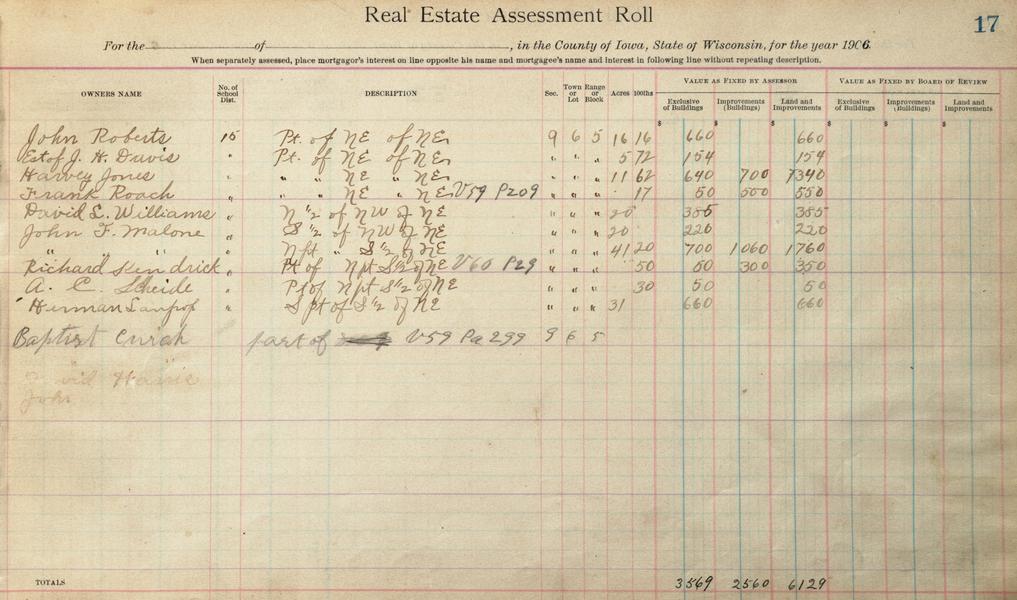 Real Estate Assessment Roll
17
For the of , in the County of Iowa, State of Wisconsin, for the year 1906.
When separately assessed, place mortgagor's interest on line opposite his name and mortgagee's name and interest in following line without repeating description.
OWNERS NAME No. of School Dist. DESCRIPTION Sec. Town or Lot Range or Block Acres 100ths VALUE AS FIXED BY ASSESSOR VALUE AS FIXED BY BOARD OF REVIEW
Exclusive of Buildings Improvements (Buildings) Land and Improvements Exclusive of Buildings Improvements (Buildings) Land and Improvements
$ $ $ $ $ $
John Roberts 15 Pt. of NE of NE 9 6 5 16 16 660 660
Est of J. H. Davis " Pt. of NE of NE " " " 5 72 154 154
Harvey Jones " " " NE " NE " " " 11 62 640 700 1340
Frank Roach " " " NE " NE V59 P209 " " " 17 50 500 550
David E. Williams " N ½ of NW of NE " " " 20 385 385
John F. Malone " S ½ of NW of NE " " " 20 220 220
" " " " N pt " S ½ of NE " " " 41 20 700 1060 1760
Richard Kendrick " Pt of N pt S ½ of NE V60 P29 " " " 50 50 300 350
A. C. Scheide " Pt of N pt S ½ of NE " " " 30 50 50
Herman " S pt of S ½ of NE " " " 31 660 660
Baptist part of V59 Pa 299 9 6 5
David Harris
John
TOTALS 3569 2560 6129